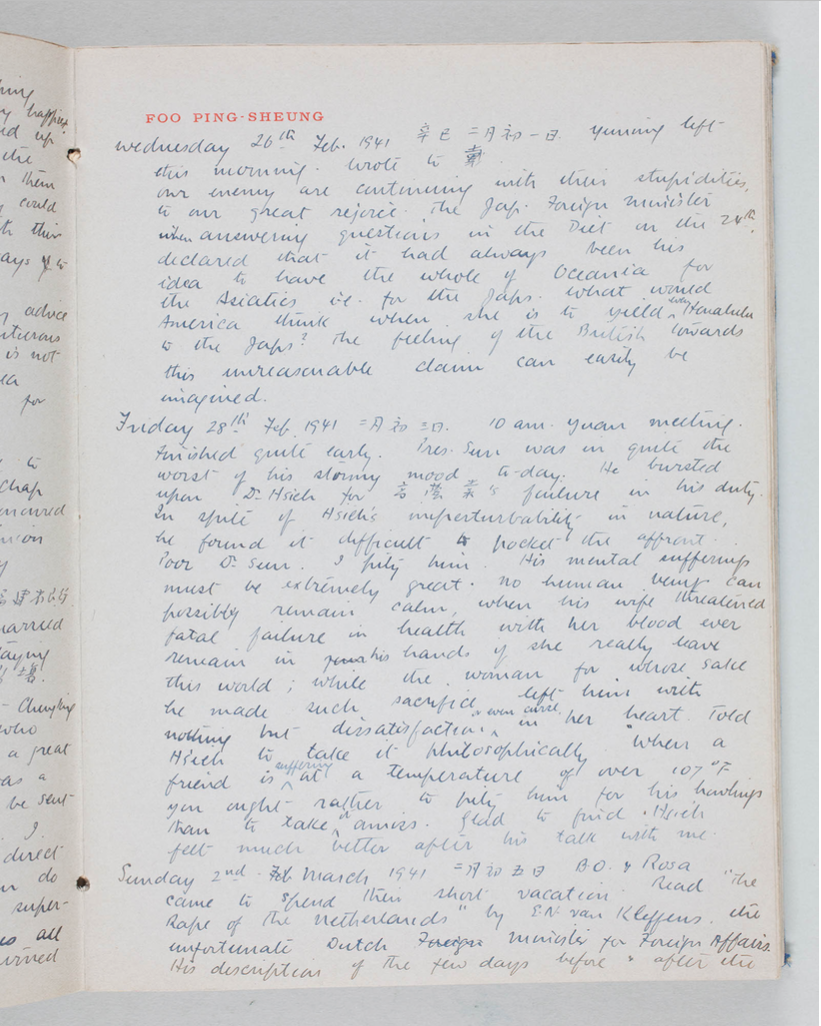 FOO PING-SHEUNG
Wednesday 26th Feb. 1941 辛巳 二月初一日. Yuming left
this morning. Wrote to 戴.
our enemy are continuing with their stupidities,
to our great rejoice. The Jap. Foreign minister
when answering questions in the Diet on the 24th,
declared that it had always been his
idea to have the whole of Oceania for
the Asiatics i.e. for the Japs. What would
America think when she is to yield even Honolulu
to the Japs? The feeling of the British towards
this unreasonable claim can easily be
imagined.
Friday 28th Feb. 1941 二月初三日. 10 am. Yuan meeting.
Finished quite early. Pres. Sun was in quite the
worst of his stormy mood to-day. He bursted
upon Dr. Hsieh for 's failure in his duty.
In spite of Hsieh's imperturbability in nature,
he found it difficult to pocket the affront.
Poor Dr. Sun. I pity him. His mental sufferings
must be extremely great. No human being can
possibly remain calm, when his wife threatened
fatal failure in health with her blood ever
remain in his hands if she really leave
this world; while the woman for whose sake
he made such sacrifice left him with
nothing but dissatisfaction & even curse in her heart. Told
Hsieh to take it philosophically "when a
friend is suffering at a temperature of over 107°F
you ought rather to pity him for his howlings
than to take it amiss. Glad to find Hsieh
felt much better after his talk with me.
Sunday 2nd Feb March 1941 二月初五日 B.O. & Rosa
came to spend their short vacation. Read "The
Rape of the Netherlands" by E.N. van Kleffens, the
unfortunate Dutch Foreign Minister for Foreign Affairs.
His description of the few days before & after the
happier
up
the
them
could
ays
advice
is not
for
to
Chap
married
Chungking
who
a great
was a
be sent
I
direct
do
super-
all